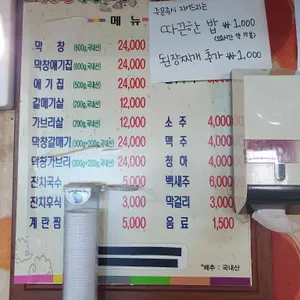 메뉴
주문즉시 지어드리는
따끈한 밥 ₩1,000
된장찌개 추가 ₩1,000
막창 (600g,국내산) 24,000
막창애기집 (600g,국내산) 24,000
애기집 (600g,국내산) 24,000
갈매기살 (200g,국내산) 12,000
가브리살 (200g,국내산) 12,000
막창갈매기 (300g+200g,국내산) 24,000
막창가브리 (300g+200g,국내산) 24,000
잔치국수 5,000
잔치후식 3,000
계란찜 5,000
소주 4,000
맥주 4,000
청하
백세주 6,000
막걸리 3,000
음료 1,500
*배추 : 국내산